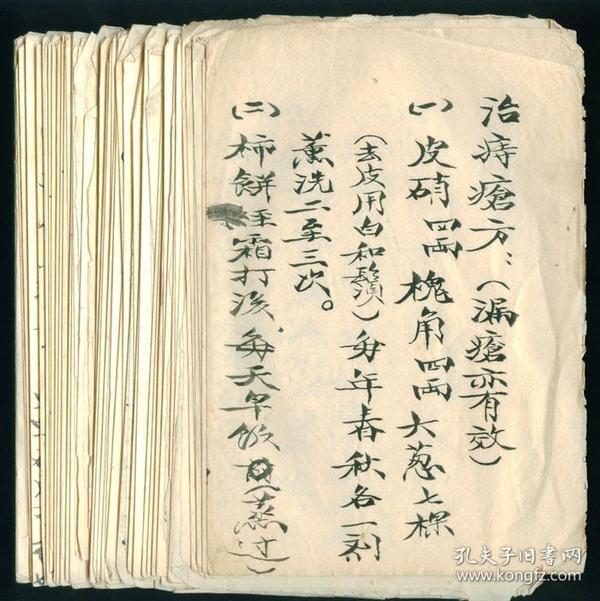 治痔瘡方：（漏瘡亦有效）
㈠ 皮硝四兩 槐角四兩 大葱七棵
（去皮用白和鬚）每年春秋各一剂
薰洗二至三次。
㈡ 柿餅 霜打後，每天早飯（蒸过）
孔夫子旧书网
www.kongfz.com